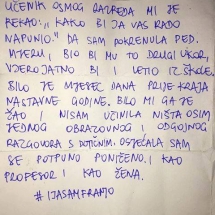 UČENIK OSMOG RAZREDA MI JE
REKAO: „KAKO BI JA VAS RADO
NAPUNIO." DA SAM POKRENULA PED.
MJERU, BIO BI MU TO DRUGI UKOR,
VJEROJATNO BI I LETIO IZ ŠKOLE.
BILO JE MJESEC DANA PRIJE KRAJA
NASTAVNE GODINE. BILO MI GA JE
ŽAO I NISAM UČINILA NIŠTA OSIM
JEDNOG OBRAZOVNOG I ODGOJNOG
RAZGOVORA S DOTIČNIM. OSJEĆALA SAM
SE POTPUNO PONIŽENO. I KAO
PROFESOR I KAO ŽENA.
#IJASAMFRANJO